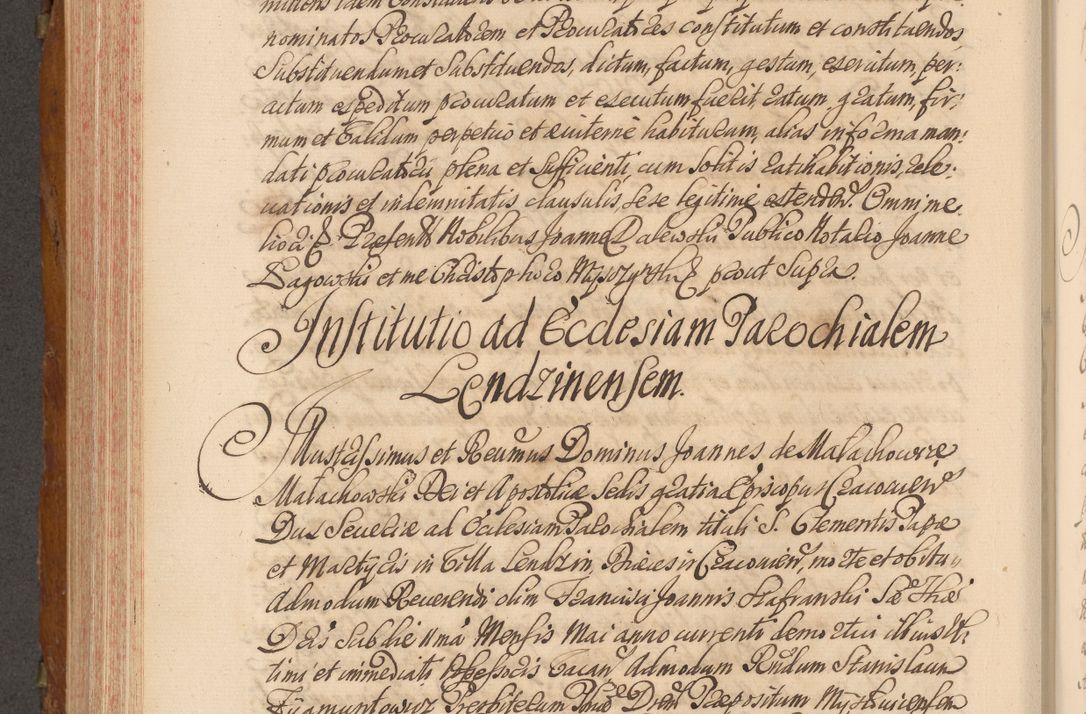 nominatos Procuratorem et Procuratores constitutum et constituendos
Substituendum et Substituendos, dictum, factum, gestum, exercitum, per:
actum expeditum procuratum et executum fuerit, ratum, gratum, fir:
mum et Validum perpetuo et æviterne habiturum, alias in forma man:
dati procuratorij plena et Sufficienti, cum solitis ratihabitionis, rele:
vationis et indemnitatis clausulis, sese legitime extenden. Omni me:
liori &. Præsentibus Nobilibus Joanne Dalewski Publico Notario, Joanne
Łagowski et me Christophoro prout Supra.
Institutio ad Ecclesiam Parochialem
Lendzinensem.
Illustrissimus et Reverendissimus Dominus Joannes de Małachowice
Małachowski Dei et Apostolicæ Sedis gratia Episcopus Cracovien
Dux Severiæ ad Ecclesiam Parochialem tituli S. Clementis Papæ
et Martyris in Villa Lendzin, Diæcesis Cracovien, morte et obitu
Admodum Reverendi olim Francisci Joannis Stafranski Sæ Thæ
Dris Sub die 11ma Mensis Mai anno currenti demortui illius Ul:
timi et immediati Possessoris Vacan Admodum Rndum Stanislaum
Zygmuntowicz Presbiterum Præpositum